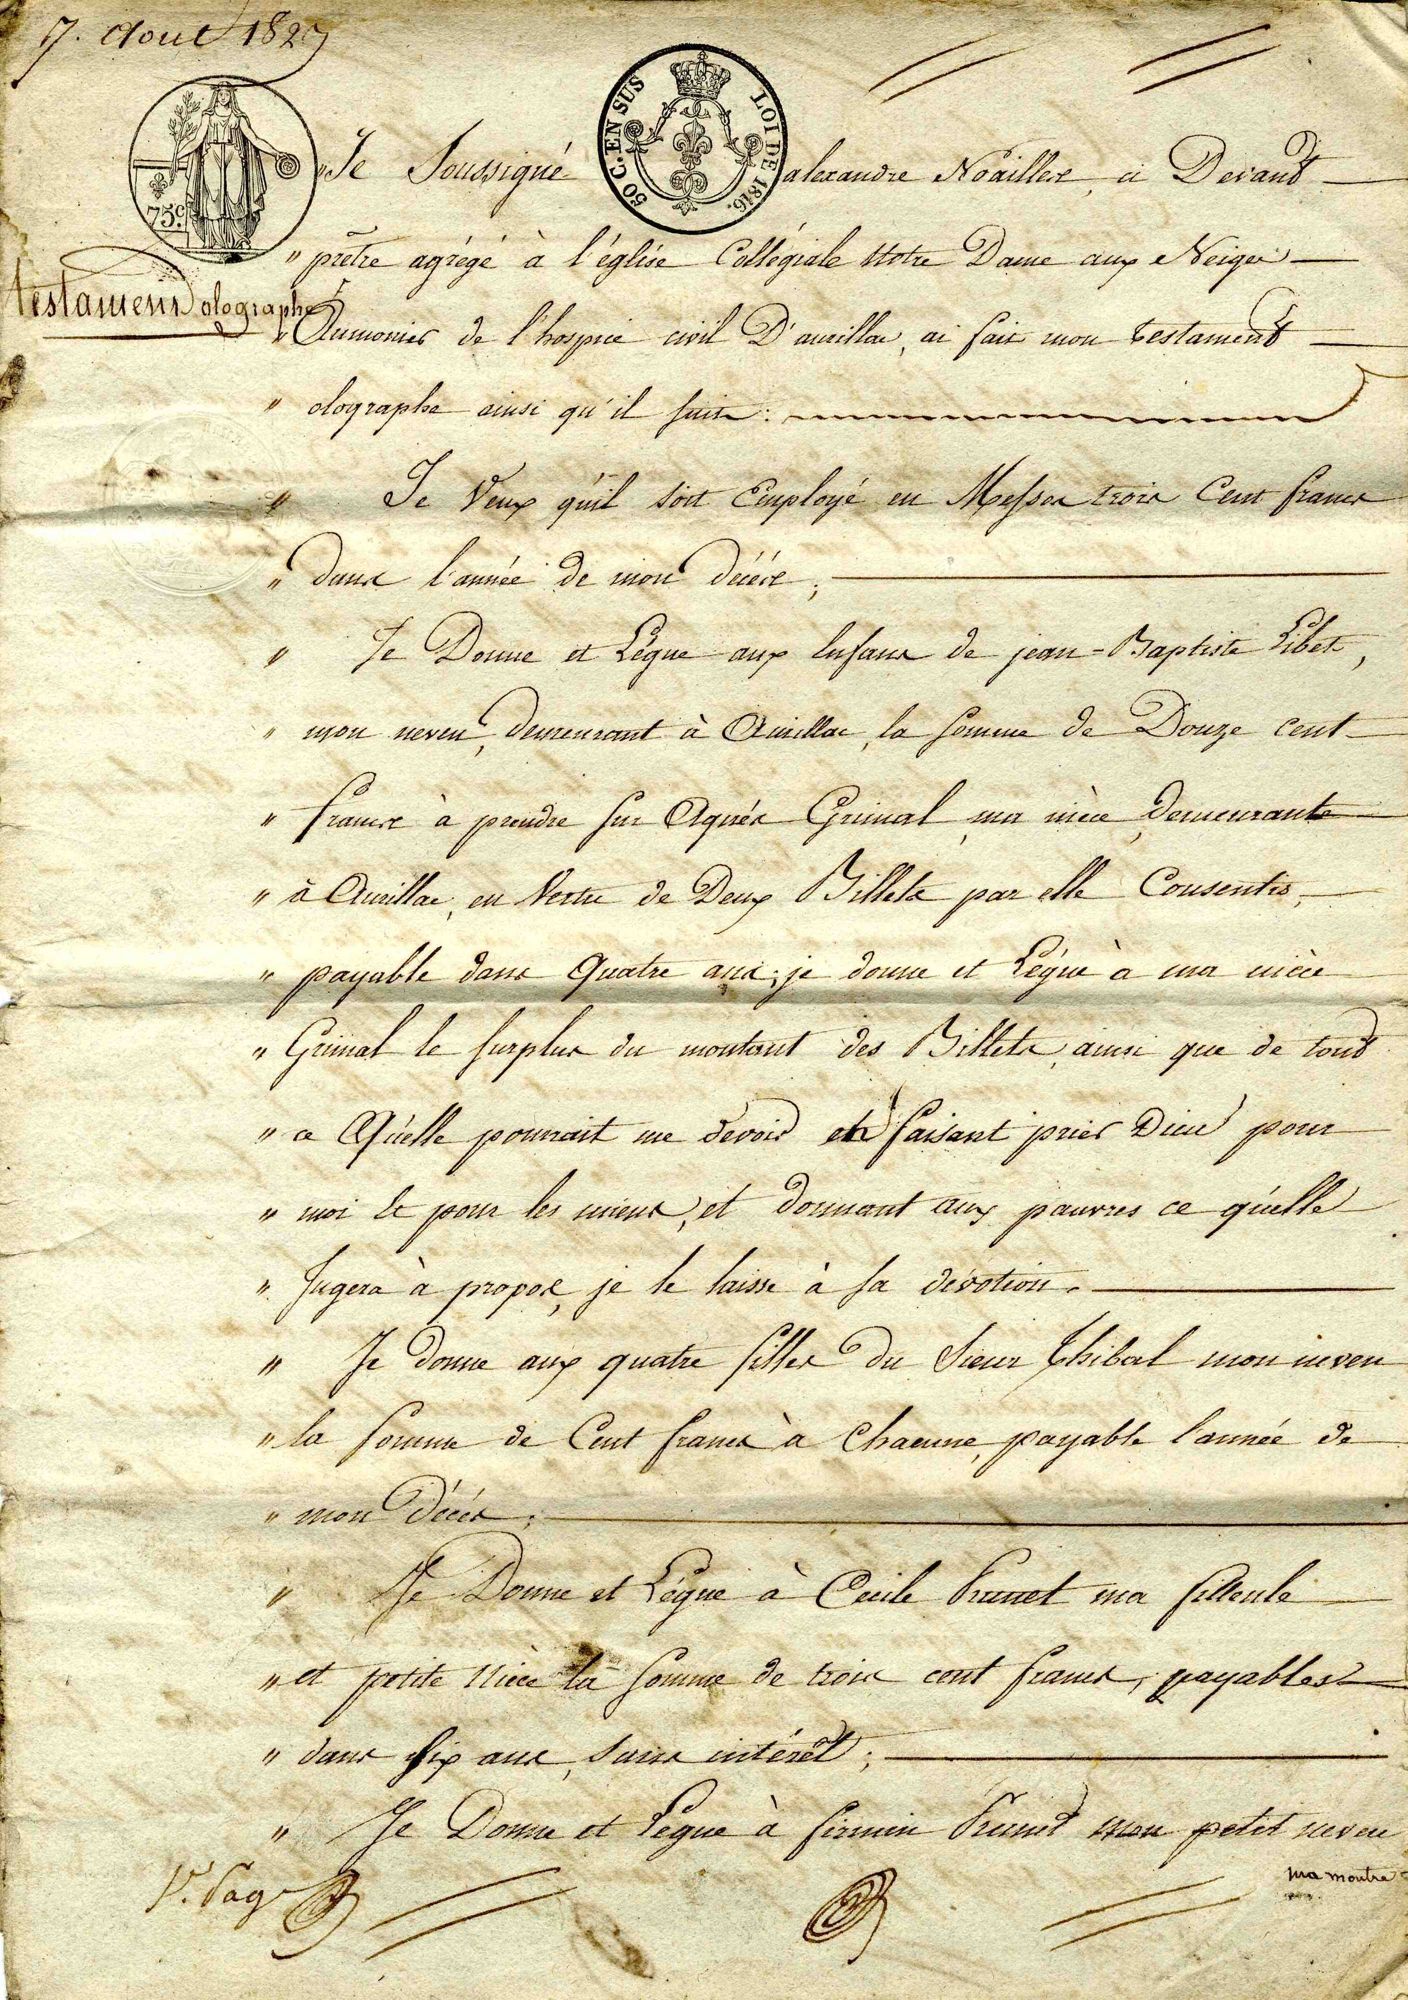 7. Aout 1827
50 C. EN SUS LOI DE 1816.
75c.
testament olographe
" Je Soussigné alexandre Noailles, ci Devant
" prêtre agrégé à l'église Collégiale Notre Dame aux Neiges
" Aumonier de l'hospice civil D'aurillac, ai fait mon testament
" olographe ainsi qu'il suit :
" Je Veux qu'il soit Employé en Messes trois Cent francs
" dans l'année de mon décès ;
" Je Donne et Légue aux Enfans de jean-Baptiste Libet,
" mon neveu, demeurant à Aurillac, la somme de Douze cent
" francs à prendre sur Agnès Grimal, ma nièce, demeurante
" à Aurillac, en Vertu de Deux Billets par elle Consentis,
" payable dans Quatre ans ; je donne et Légue à ma nièce
" Grimal le surplus du montant des Billets, ainsi que de tout
" ce Qu'elle pourrait me devoir en faisant prier Dieu pour
" moi & pour les miens, et donnant aux pauvres ce qu'elle
" Jugera à propos, je le laisse à sa dévotion.
" Je donne aux quatre filles du Sieur Thibal mon neveu
" la somme de Cent francs à Chacune, payable l'année de
" mon Décès ;
" Je Donne et Légue à Cécile Prunet ma filleule
" et petite Nièce la somme de trois cent francs, payables
" dans six ans, sans intérêt ;
" Je Donne et Légue à firmin Prunet mon petit neveu
ma montre
1re. Page